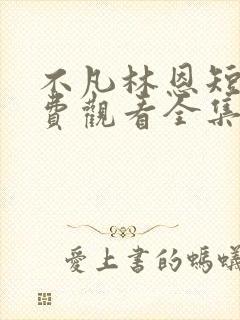 不凡林恩短
費觀看全集
愛上書的螞蟻